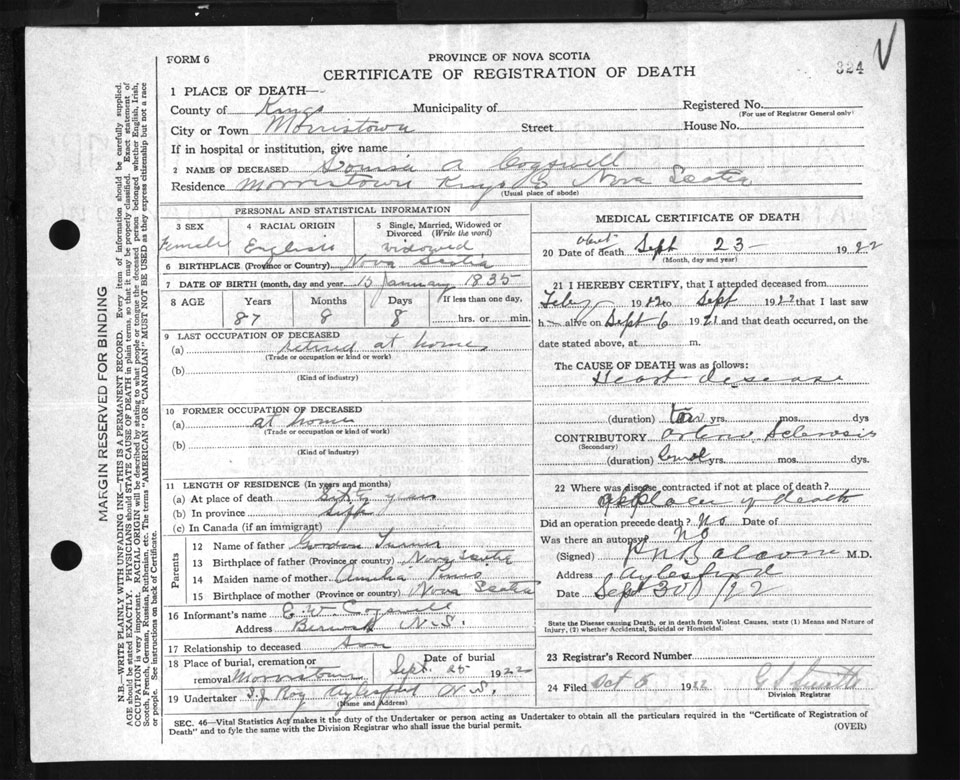 FORM 6
PROVINCE OF NOVA SCOTIA
324
CERTIFICATE OF REGISTRATION OF DEATH
1 PLACE OF DEATH—
County of Kings Municipality of Registered No.
(For use of Registrar General only)
City or Town Morristown Street House No.
If in hospital or institution, give name
2 NAME OF DECEASED Louisa A Cogswell
Residence Morristown Kings Co Nova Scotia
(Usual place of abode)
PERSONAL AND STATISTICAL INFORMATION
3 SEX 4 RACIAL ORIGIN 5 Single, Married, Widowed or Divorced (Write the word)
Female English Widowed
6 BIRTHPLACE (Province or Country) Nova Scotia
7 DATE OF BIRTH (month, day and year) 15 January 1835
8 AGE Years Months Days If less than one day,
87 8 8 hrs. or min.
9 LAST OCCUPATION OF DECEASED
(a) retired at home
(Trade or occupation or kind of work)
(b)
(Kind of industry)
10 FORMER OCCUPATION OF DECEASED
(a) at home
(Trade or occupation or kind of work)
(b)
(Kind of industry)
11 LENGTH OF RESIDENCE (In years and months)
(a) At place of death Sixty years
(b) In province Life
(c) In Canada (if an immigrant)
Parents
12 Name of father Gordon Turner
13 Birthplace of father (Province or country) Nova Scotia
14 Maiden name of mother Amelia
15 Birthplace of mother (Province or country) Nova Scotia
16 Informant's name E. W. Cogswell
Address Berwick N.S.
17 Relationship to deceased Son
18 Place of burial, cremation or removal Morristown Date of burial Sept. 25 1922
19 Undertaker Roy Aylesford N.S.
(Name and Address)
MEDICAL CERTIFICATE OF DEATH
20 Date of death about Sept 23 1922
(Month, day and year)
21 I HEREBY CERTIFY, that I attended deceased from
Feby 1922 to Sept 1922 that I last saw
h alive on Sept 6 1921 and that death occurred, on the
date stated above, at m.
The CAUSE OF DEATH was as follows:
Heart disease
(duration) two yrs. mos. dys
CONTRIBUTORY Arterio Sclerosis
(Secondary)
(duration) several yrs. mos. dys.
22 Where was disease contracted if not at place of death?
at place of death
Did an operation precede death? No Date of
Was there an autopsy? No
(Signed) P N Balcom M.D.
Address Aylesford
Date Sept 30 /22
State the Disease causing Death, or in death from Violent Causes, state (1) Means and Nature of Injury, (2) whether Accidental, Suicidal or Homicidal.
23 Registrar's Record Number
24 Filed Oct 5 1922
Division Registrar
SEC. 46—Vital Statistics Act makes it the duty of the Undertaker or person acting as Undertaker to obtain all the particulars required in the "Certificate of Registration of
Death" and to fyle the same with the Division Registrar who shall issue the burial permit.
(OVER)
MARGIN RESERVED FOR BINDING
N.B.—WRITE PLAINLY WITH UNFADING INK—THIS IS A PERMANENT RECORD. Every item of information should be carefully supplied.
AGE should be stated EXACTLY. PHYSICIANS should STATE CAUSE OF DEATH in plain terms, so that it may be properly classified. Exact statement of
OCCUPATION is very important. RACIAL ORIGIN will be described by stating to what people or tongue the deceased person belonged whether English, Irish,
Scotch, French, German, Russian, Ruthenian, etc. The terms "AMERICAN" OR "CANADIAN" MUST NOT BE USED as they express citizenship but not a race
or people. See instructions on back of Certificate.